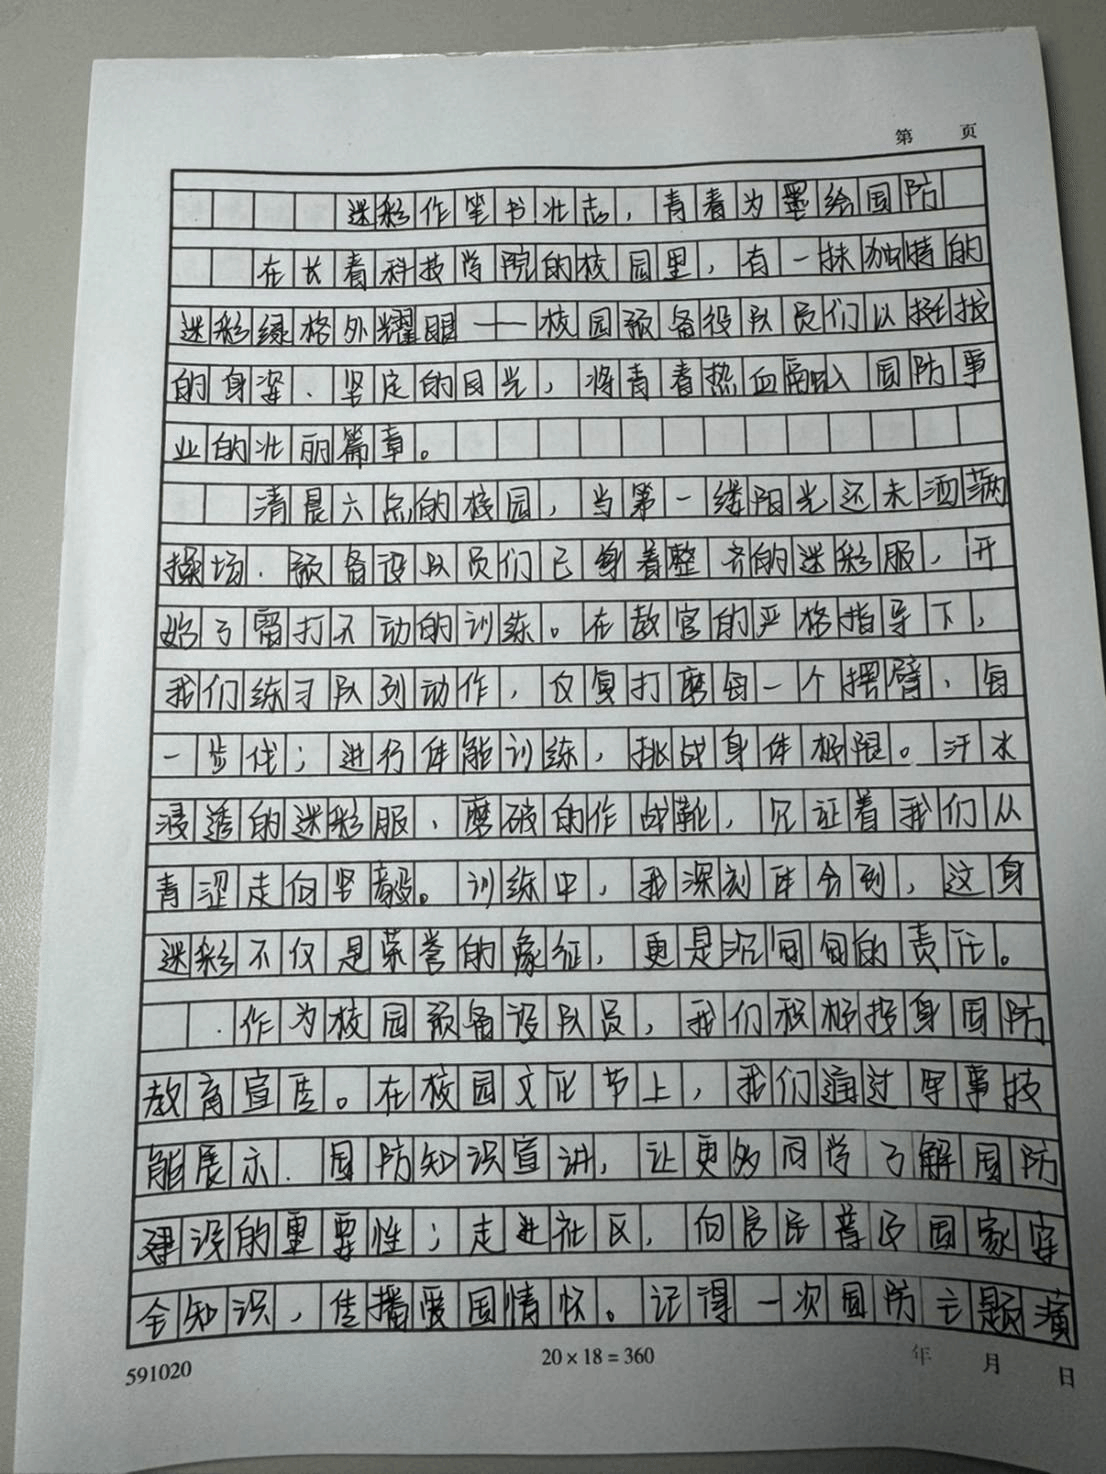 第 页
迷彩作笔书壮志，青春为墨绘国防
在长春科技学院的校园里，有一抹独特的
迷彩绿格外耀眼——校园预备役队员们以挺拔
的身姿、坚定的目光，将青春热血融入国防事
业的壮丽篇章。
清晨六点的校园，当第一缕阳光还未洒满
操场，预备役队员们已身着整齐的迷彩服，开
始了雷打不动的训练。在教官的严格指导下，
我们练习队列动作，反复打磨每一个摆臂、每
一步伐；进行体能训练，挑战身体极限。汗水
浸透的迷彩服、磨破的作战靴，见证着我们从
青涩走向坚毅。训练中，我深刻体会到，这身
迷彩不仅是荣誉的象征，更是沉甸甸的责任。
作为校园预备役队员，我们积极投身国防
教育宣传。在校园文化节上，我们通过军事技
能展示、国防知识宣讲，让更多同学了解国防
建设的重要性；走进社区，向居民普及国家安
全知识，传播爱国情怀。记得一次国防主题演
591020
20×18=360
年 月 日